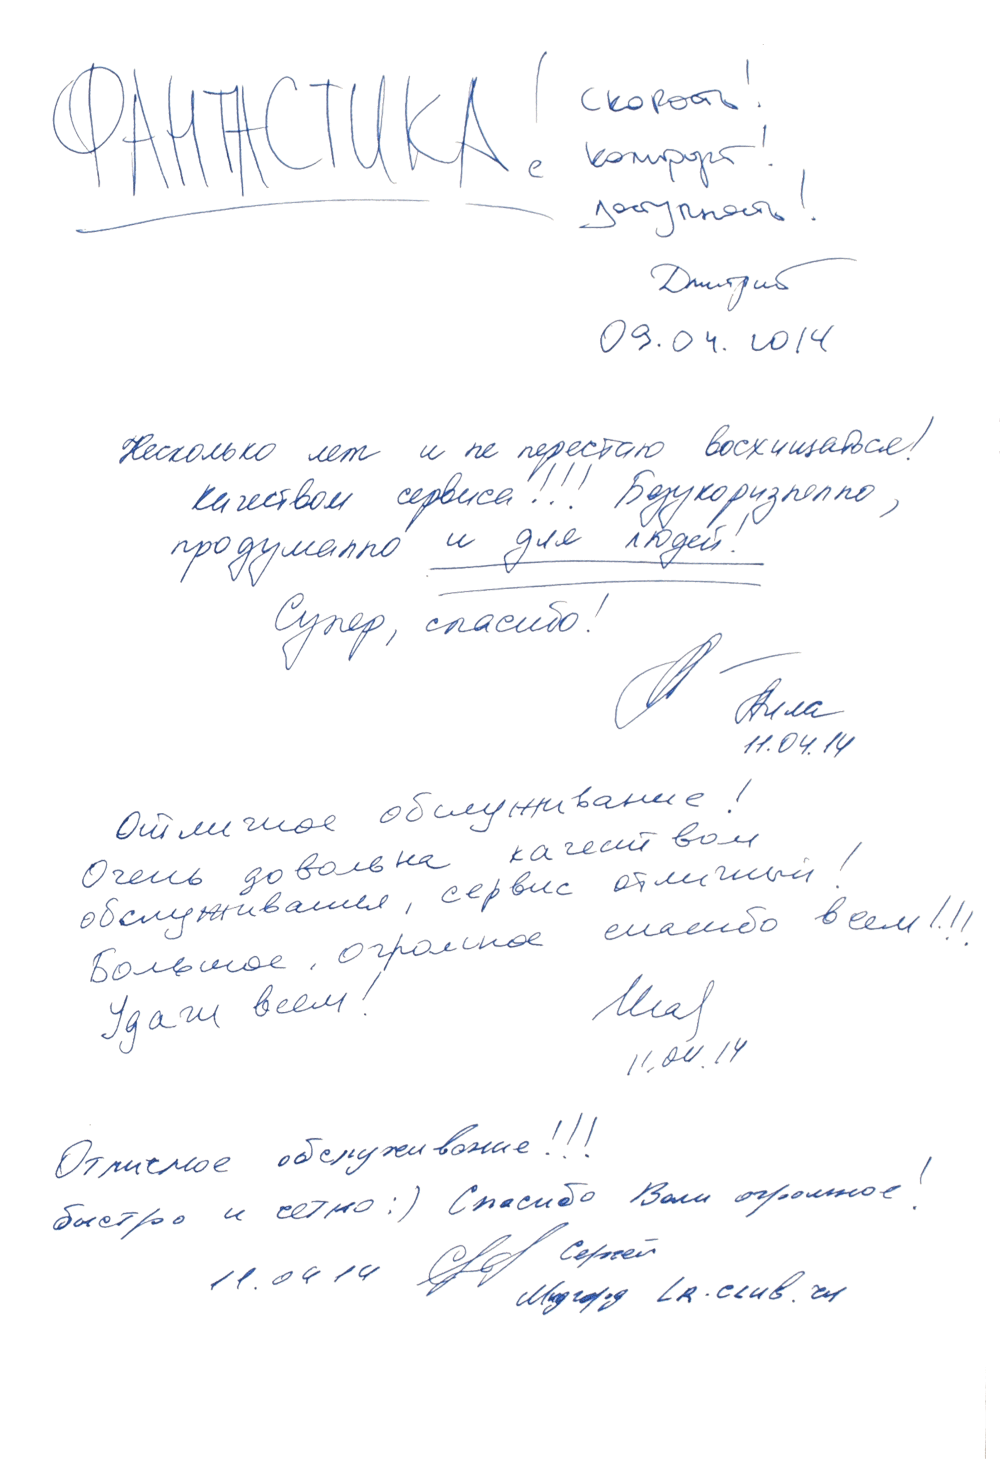 ФАНТАСТИКА!
Скорость!
комфорт!
доступность!
Дмитрий
09.04.2014
Несколько лет и не перестаю восхищаться!
качеством сервиса!!! Безукоризненно,
продуманно и для людей!
Супер, спасибо!
Алла
11.04.14
Отличное обслуживание!
Очень довольна качеством
обслуживания, сервис отличный!
Большое, огромное спасибо всем!!!
Удачи всем!
11.04.14
Отличное обслуживание!!!
быстро и четно:) Спасибо Вам огромное!
11.04 14 Сергей
Мидгард LR-CLUB.ru